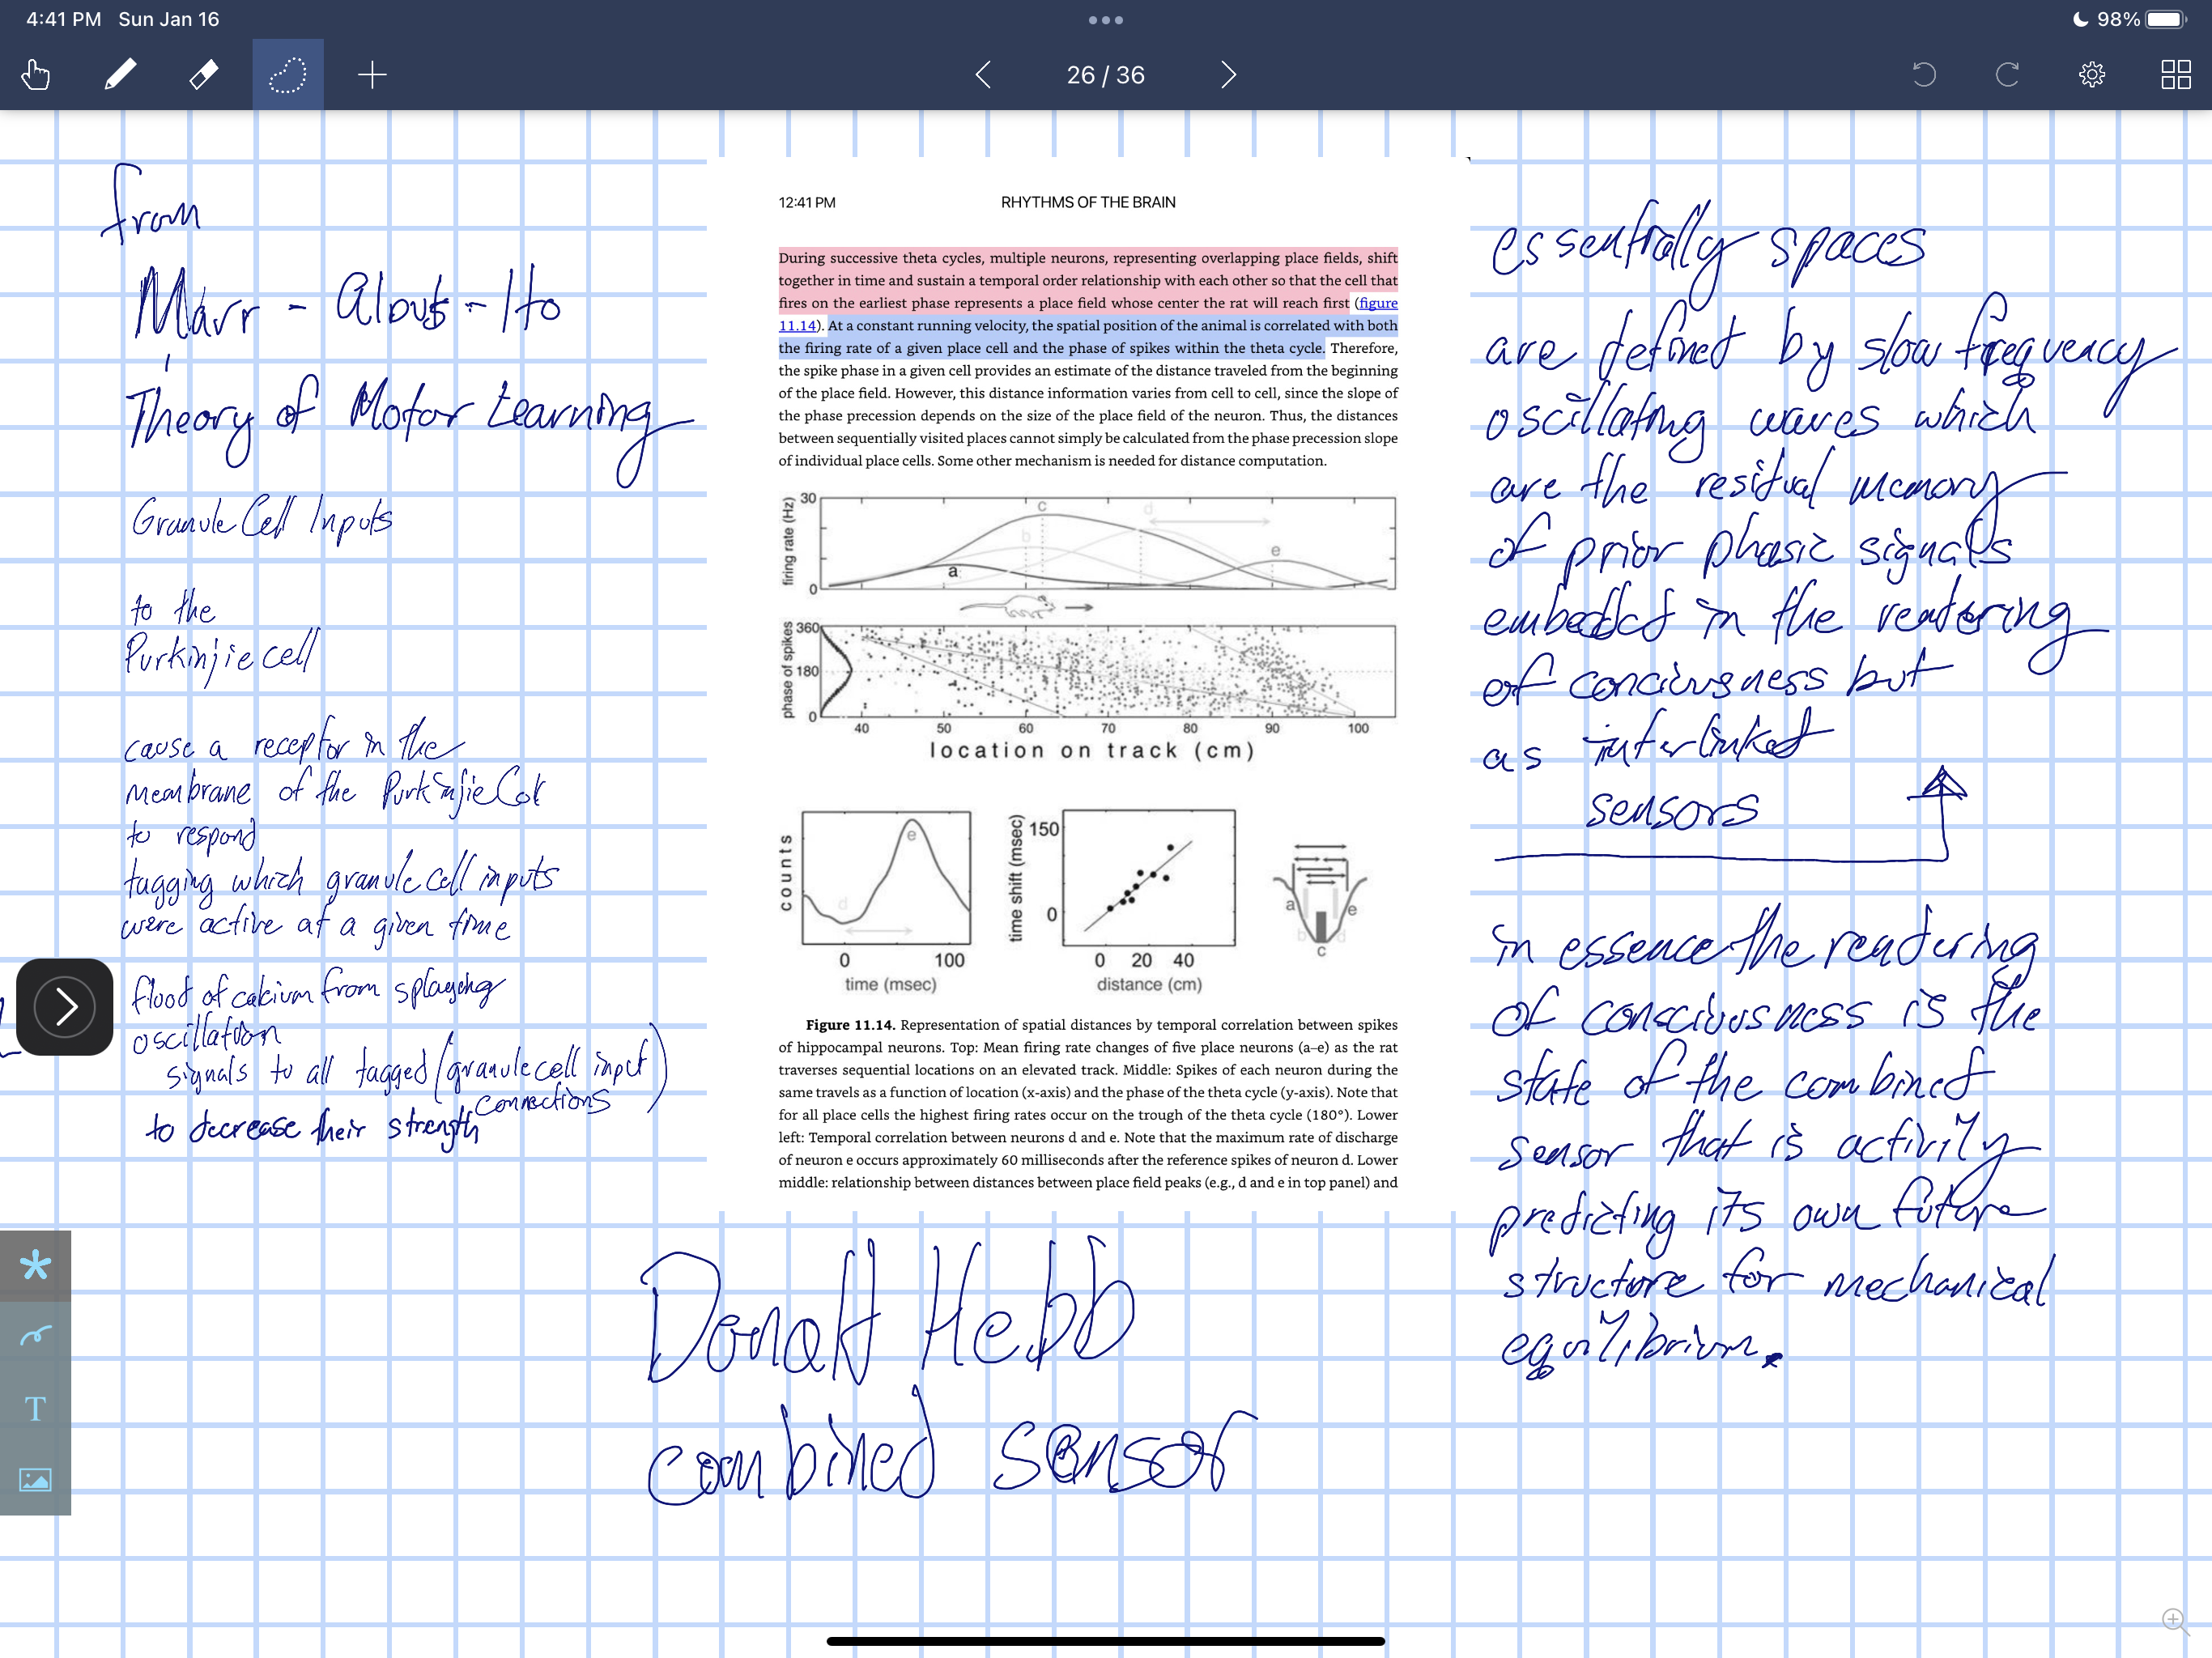 4:41 PM Sun Jan 16
98%
26 / 36
from
Marr - Albus - Ito
Theory of Motor Learning
Granule Cell Inputs
to the
Purkinjie cell
cause a receptor in the
membrane of the Purkinjie Cell
to respond
tagging which granule cell inputs
were active at a given time
flood of calcium from
oscillation
signals to all tagged (granule cell input
connections)
to decrease their strength
12:41 PM
RHYTHMS OF THE BRAIN
During successive theta cycles, multiple neurons, representing overlapping place fields, shift
together in time and sustain a temporal order relationship with each other so that the cell that
fires on the earliest phase represents a place field whose center the rat will reach first (figure
11.14). At a constant running velocity, the spatial position of the animal is correlated with both
the firing rate of a given place cell and the phase of spikes within the theta cycle. Therefore,
the spike phase in a given cell provides an estimate of the distance traveled from the beginning
of the place field. However, this distance information varies from cell to cell, since the slope of
the phase precession depends on the size of the place field of the neuron. Thus, the distances
between sequentially visited places cannot simply be calculated from the phase precession slope
of individual place cells. Some other mechanism is needed for distance computation.
firing rate (Hz)
30
0
a
b
c
d
e
phase of spikes
360
180
0
40 50 60 70 80 90 100
location on track (cm)
counts
d
e
0 100
time (msec)
time shift (msec)
150
0
0 20 40
distance (cm)
a
e
b
d
c
Figure 11.14. Representation of spatial distances by temporal correlation between spikes
of hippocampal neurons. Top: Mean firing rate changes of five place neurons (a–e) as the rat
traverses sequential locations on an elevated track. Middle: Spikes of each neuron during the
same travels as a function of location (x-axis) and the phase of the theta cycle (y-axis). Note that
for all place cells the highest firing rates occur on the trough of the theta cycle (180°). Lower
left: Temporal correlation between neurons d and e. Note that the maximum rate of discharge
of neuron e occurs approximately 60 milliseconds after the reference spikes of neuron d. Lower
middle: relationship between distances between place field peaks (e.g., d and e in top panel) and
essentially spaces
are defined by slow frequency
oscillating waves which
are the residual memory
of prior phasic signals
embedded in the rendering
of conciousness but
as interlinked
sensors
in essence the rendering
of consciousness is the
state of the combined
sensor that is activily
predicting its own future
structure for mechanical
equilibrium.
Donald Hebb
combined sensor
T